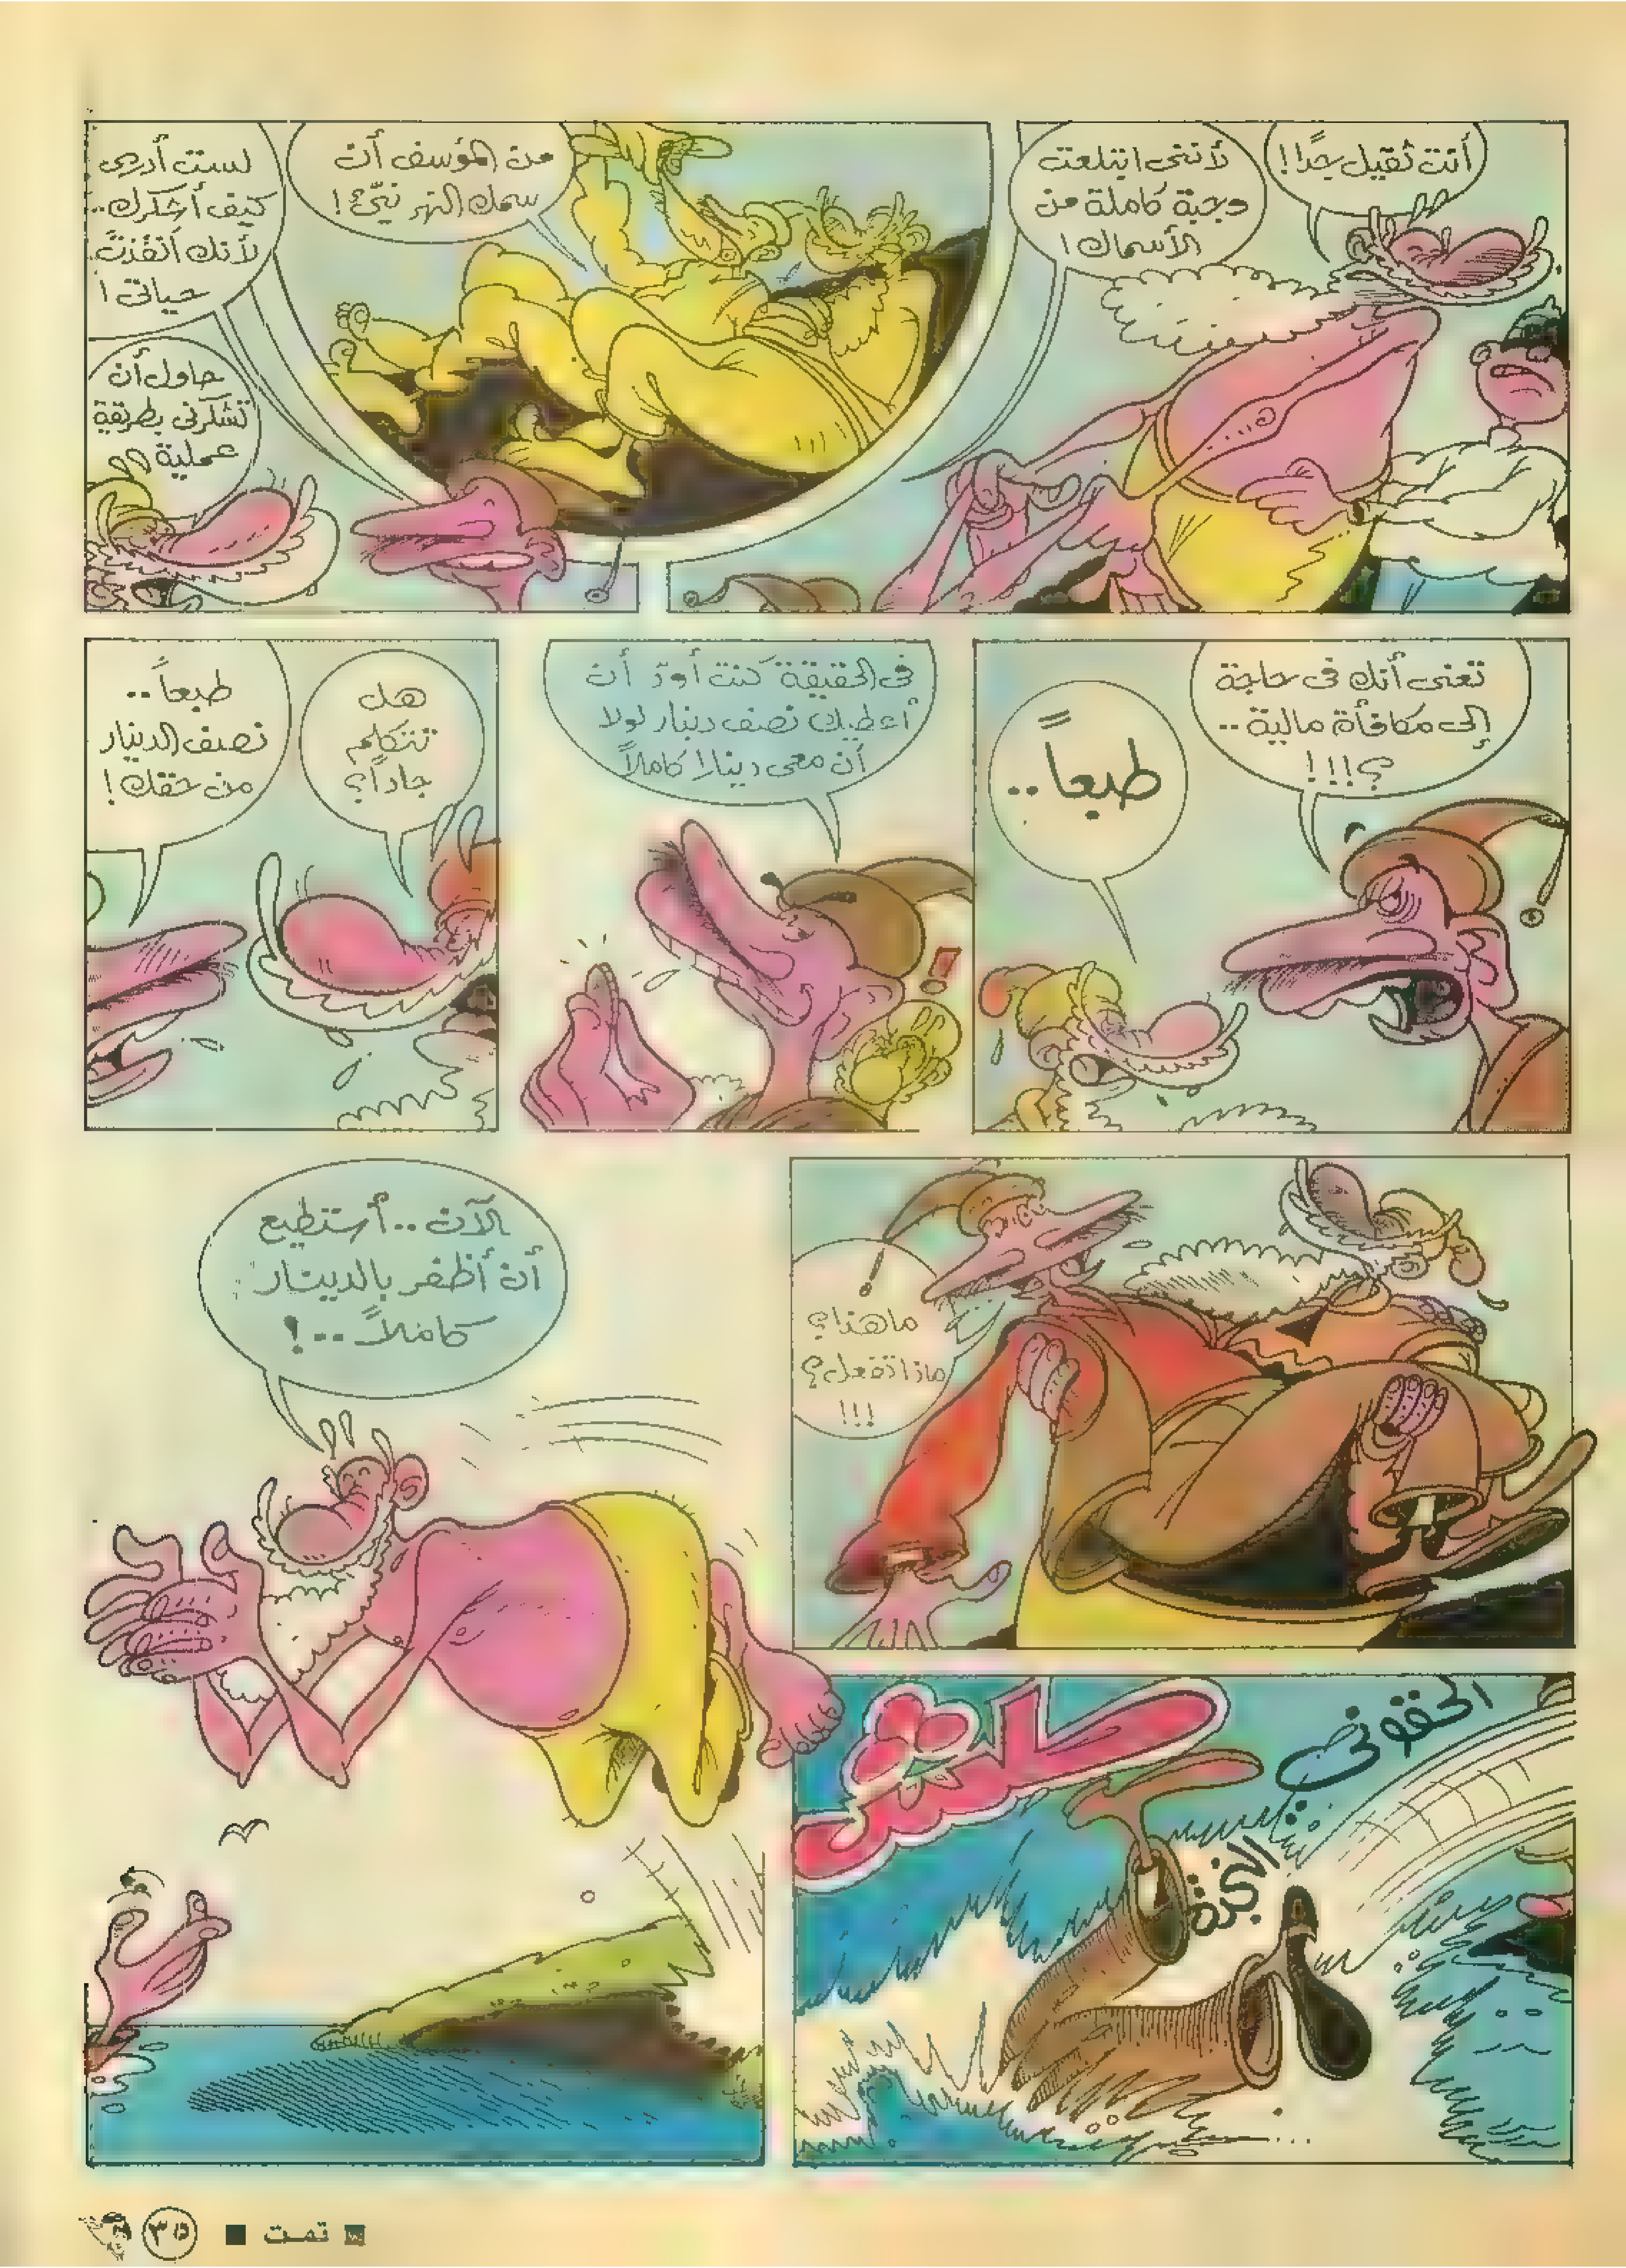 أنت ثقيل جدًا!
لأننى ابتلعت
وجبة كاملة من
الأسماك!
من المؤسف أن
سمك النهر نيّئ!
لست أدرى
كيف أشكرك..
لأنك أنقذت
حياتى!
حاول أن
تشكرنى بطريقة
عملية
تعنى أنك فى حاجة
إلى مكافأة مالية..
؟!!!
طبعاً..
فى الحقيقة كنت أودّ أن
أعطيك نصف دينار لولا
أن معى دينارا كاملاً
هل
تتكلم
جاداً؟
طبعاً..
نصف الدينار
من حقك!
ماهذا؟
ماذا تفعل؟
!!!
الحقونى
النجدة
طش
الآن.. أستطيع
أن أظفر بالدينار
كاملاً..!
تمت
٣٥